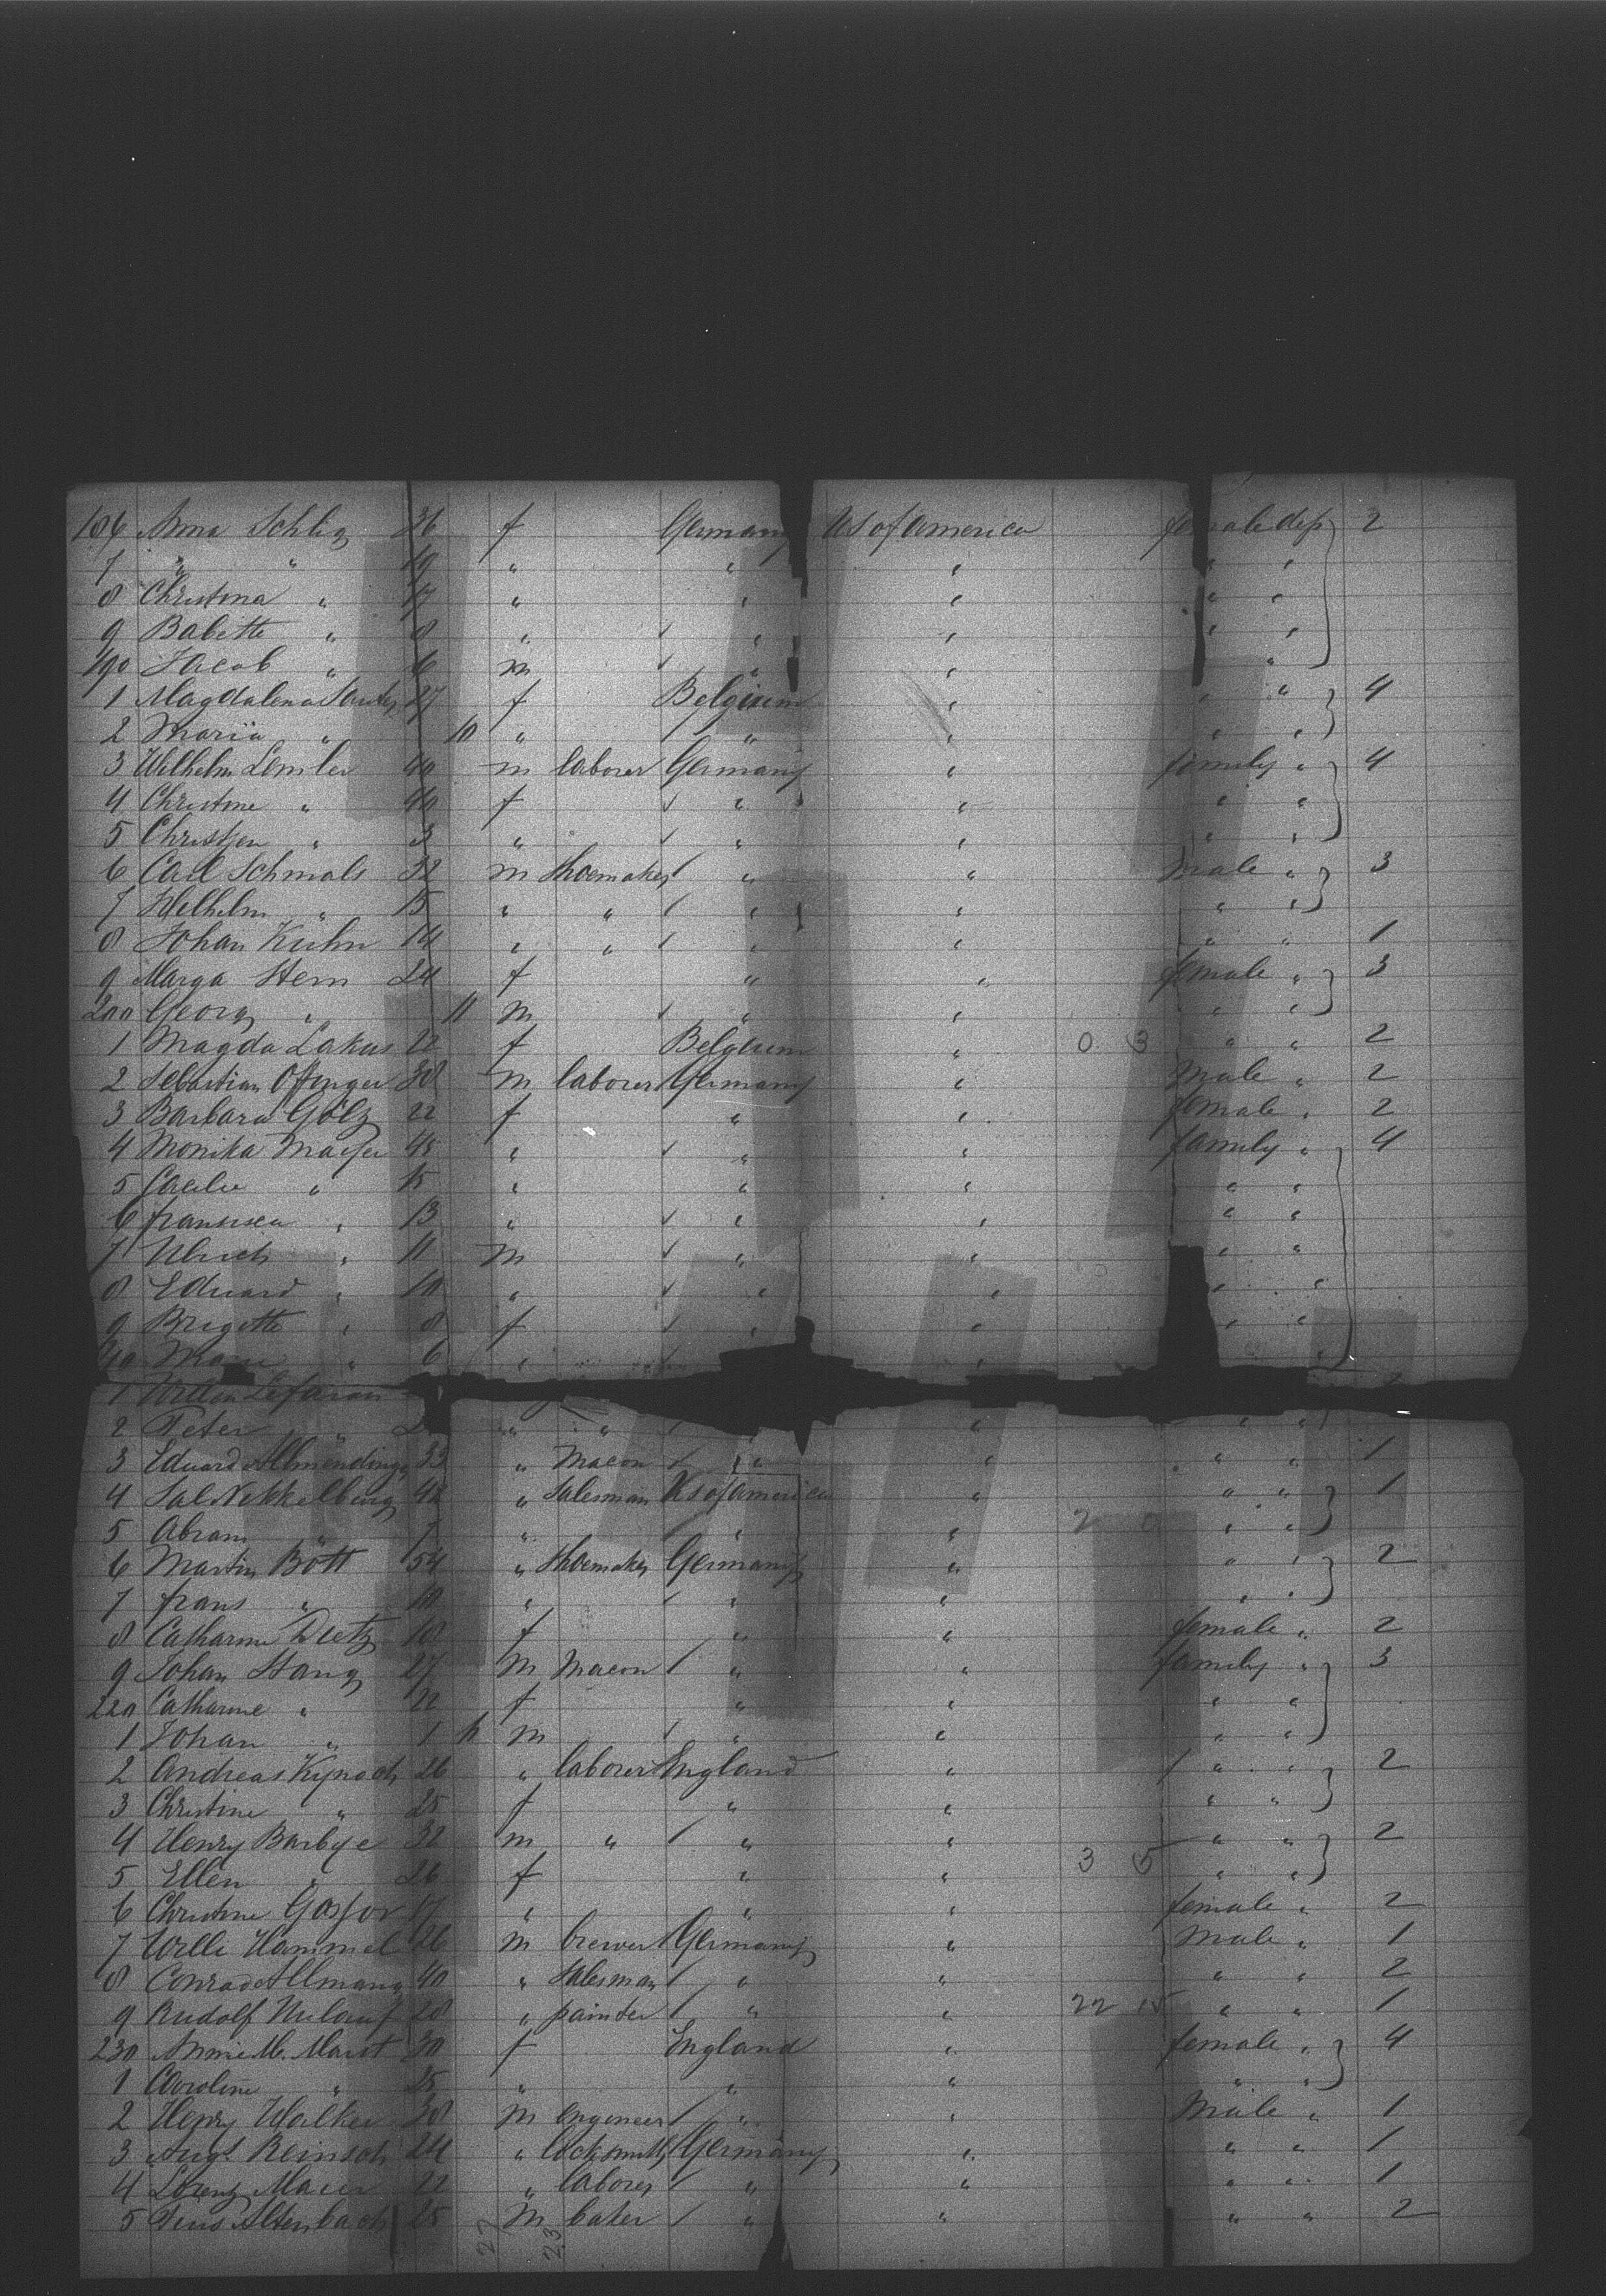 186 Anna Schlig 36 f Germany US of America female dep } 2
7 " " 19 " " " " "
8 Christina " 17 " " " " "
9 Babette " 8 " " " " "
190 Jacob " 6 m " " "
1 Magdalena 27 f Belgium " " " } 4
2 Maria " 10 " " " " "
3 Wilhelm Lemler 40 m laborer Germany " family " } 4
4 Christine " 40 f " " " "
5 Christjen " 3 " " " " "
6 Carl Schmals 32 m shoemaker " " Male " } 3
7 Wilhelm " 15 " " " " " "
8 Johan Kuhn 14 " " " " " " 1
9 Marga Stern 24 f " " female " } 3
200 Georg " 11 m " " " "
1 Magda Lakus 22 f Belgium " 0 3 " " 2
2 Sebastian Offinger 38 m laborer Germany " Male " 2
3 Barbara Gölz 22 f " " female " 2
4 Monika Mayer 45 " " " family " } 4
5 Cacilie " 15 " " " " "
6 fransisca " 13 " " " " "
7 Ulrich " 11 m " " " "
8 Eduard " 10 " " " " "
9 Brigitte " 8 f " " " "
" 6 " "
1
2 Peter " " " " " "
3 Eduard Allmendinger 33 " Mason " " " " 1
4 Sal Nekkelburg 42 " Salesman US of america " " " } 1
5 Abram " 7 " " " 2 0 " "
6 Martin Bott 54 " shoemaker Germany " " " } 2
7 frans " 10 " " " " "
8 Catharine Dietz 18 f " " female " 2
9 Johan Stang 27 m Mason " " family " } 3
220 Catharine " 22 f " " " "
1 Johan " 1 m " " " "
2 Andreas Kynoch 26 " laborer England " " " } 2
3 Christine " 25 f " " " "
4 Henry Barbye 32 m " " " " " } 2
5 Ellen " 26 f " " 3 5 " "
6 Christine 17 " " " female " 2
7 Willi Hammel 26 m brewer Germany " Male " 1
8 Conrad Allmang 40 " Salesman " " " " 2
9 Rudolf 28 " painter " " 22 15 " " 1
230 Annie M. 30 f England " female " } 4
1 Caroline " 25 " " " " "
2 Henry Walker 38 m engeneer " " Male " 1
3 Augt Reinsch 24 " locksmith Germany " " " 1
4 Lorenz Maier 22 " laborer " " " " 1
5 Altenbach 25 m baker " " " " 2
27 23